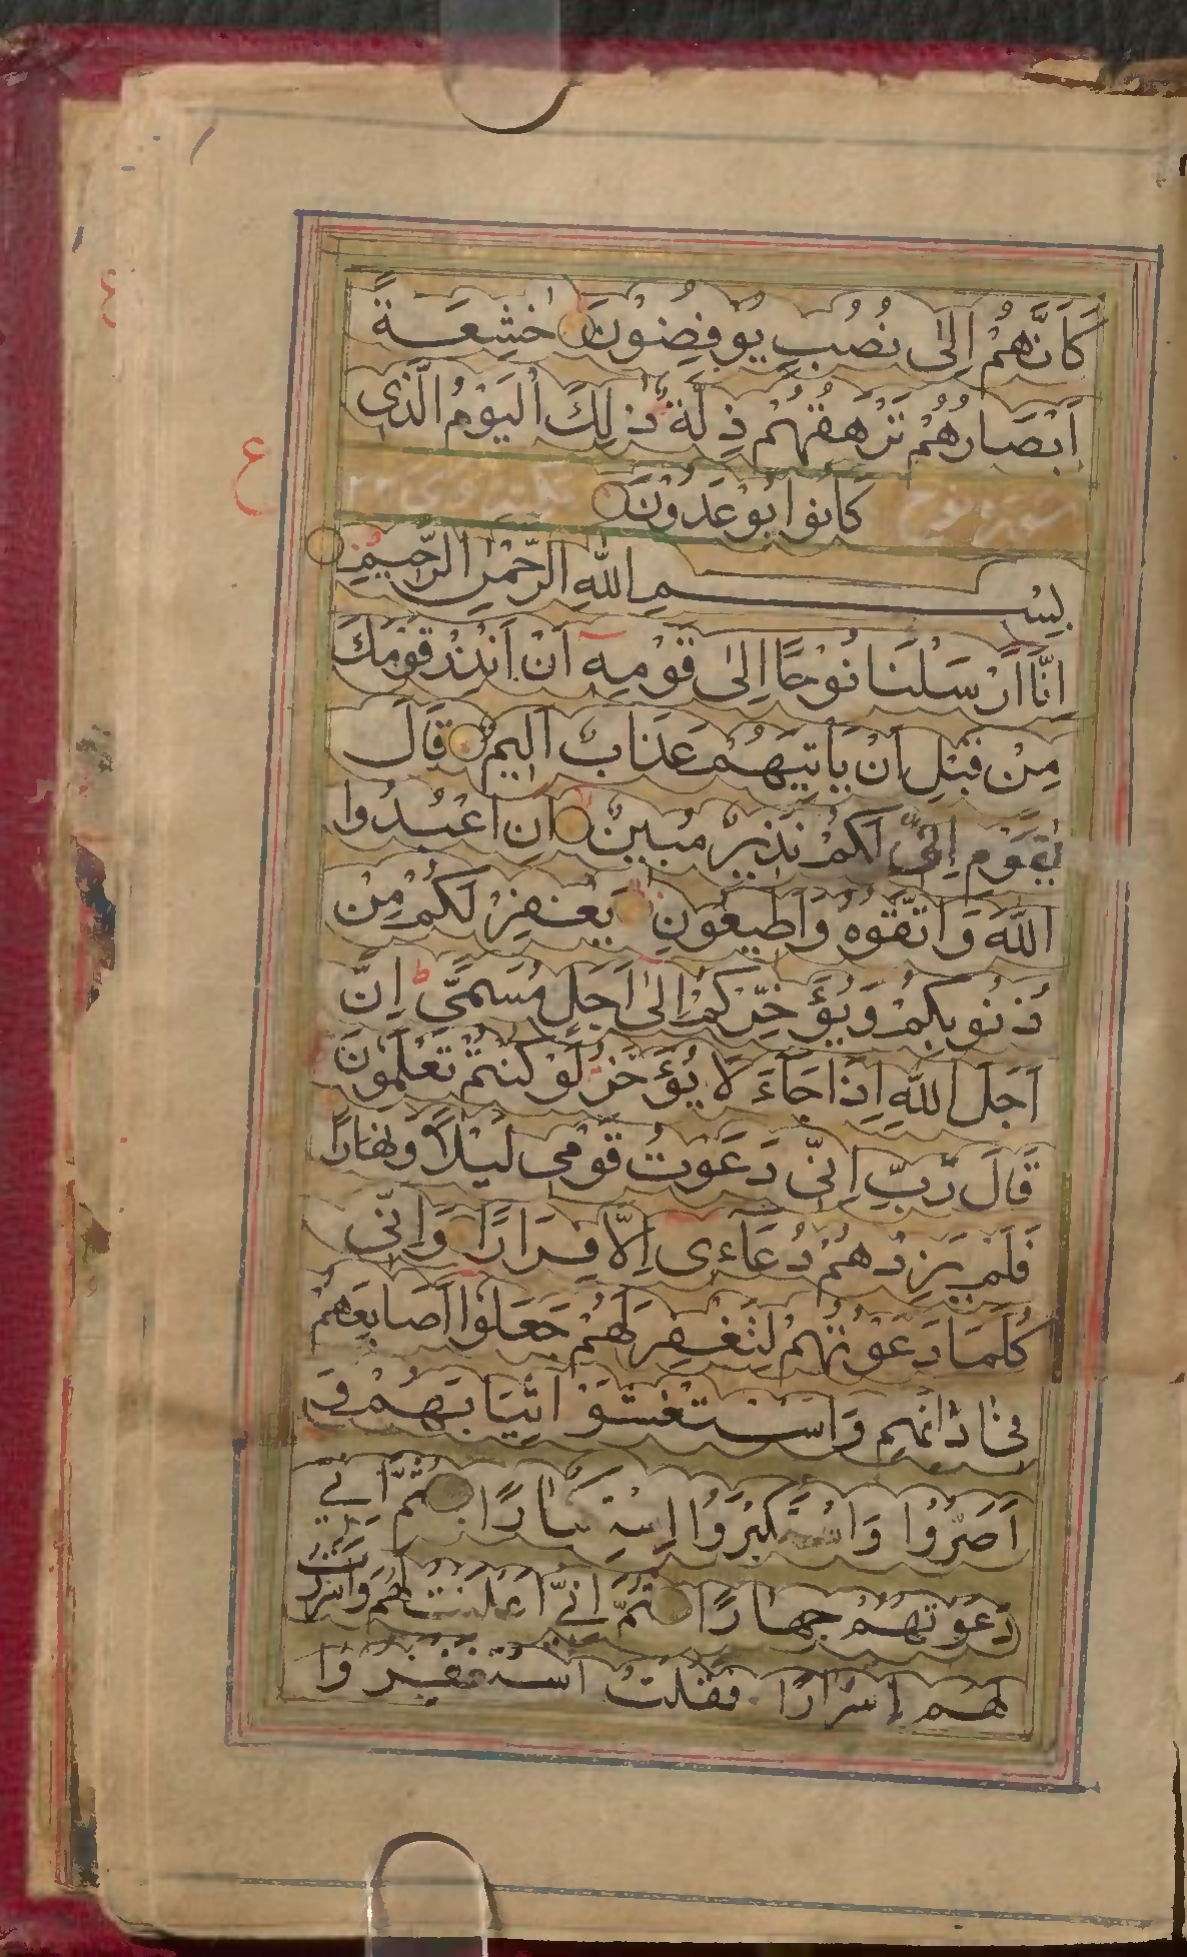 كَاَنَّهُمْ اِلٰى نُصُبٍ يُوْفِضُوْنَ خٰشِعَةً
اَبْصَارُهُمْ تَرْهَقُهُمْ ذِلَّةٌ ذٰلِكَ الْيَوْمُ الَّذِى
سورة نوح كَانُوا يُوْعَدُوْنَ
بِسْمِ اللّٰهِ الرَّحْمٰنِ الرَّحِيْمِ
اِنَّا اَرْسَلْنَا نُوْحًا اِلٰى قَوْمِهٖ اَنْ اَنْذِرْ قَوْمَكَ
مِنْ قَبْلِ اَنْ يَاْتِيَهُمْ عَذَابٌ اَلِيْمٌ قَالَ
يٰقَوْمِ اِنِّىْ لَكُمْ نَذِيْرٌ مُبِيْنٌ اَنِ اعْبُدُوا
اللّٰهَ وَاتَّقُوْهُ وَاَطِيْعُوْنِ يَغْفِرْ لَكُمْ مِنْ
ذُنُوْبِكُمْ وَيُؤَخِّرْكُمْ اِلٰى اَجَلٍ مُسَمًّى ط اِنَّ
اَجَلَ اللّٰهِ اِذَا جَآءَ لَا يُؤَخَّرُ لَوْ كُنْتُمْ تَعْلَمُوْنَ
قَالَ رَبِّ اِنِّى دَعَوْتُ قَوْمِى لَيْلًا وَنَهَارًا
فَلَمْ يَزِدْهُمْ دُعَآءِى اِلَّا فِرَارًا وَاِنِّى
كُلَّمَا دَعَوْتُهُمْ لِتَغْفِرَ لَهُمْ جَعَلُوْا اَصَابِعَهُمْ
فِى اٰذَانِهِمْ وَاسْتَغْشَوْا ثِيَابَهُمْ وَ
اَصَرُّوْا وَاسْتَكْبَرُوا اسْتِكْبَارًا ثُمَّ اِنِّى
دَعَوْتُهُمْ جِهَارًا ثُمَّ اِنِّى اَعْلَنْتُ لَهُمْ وَاَسْرَرْتُ
لَهُمْ اِسْرَارًا فَقُلْتُ اسْتَغْفِرُوْا
ع
ع